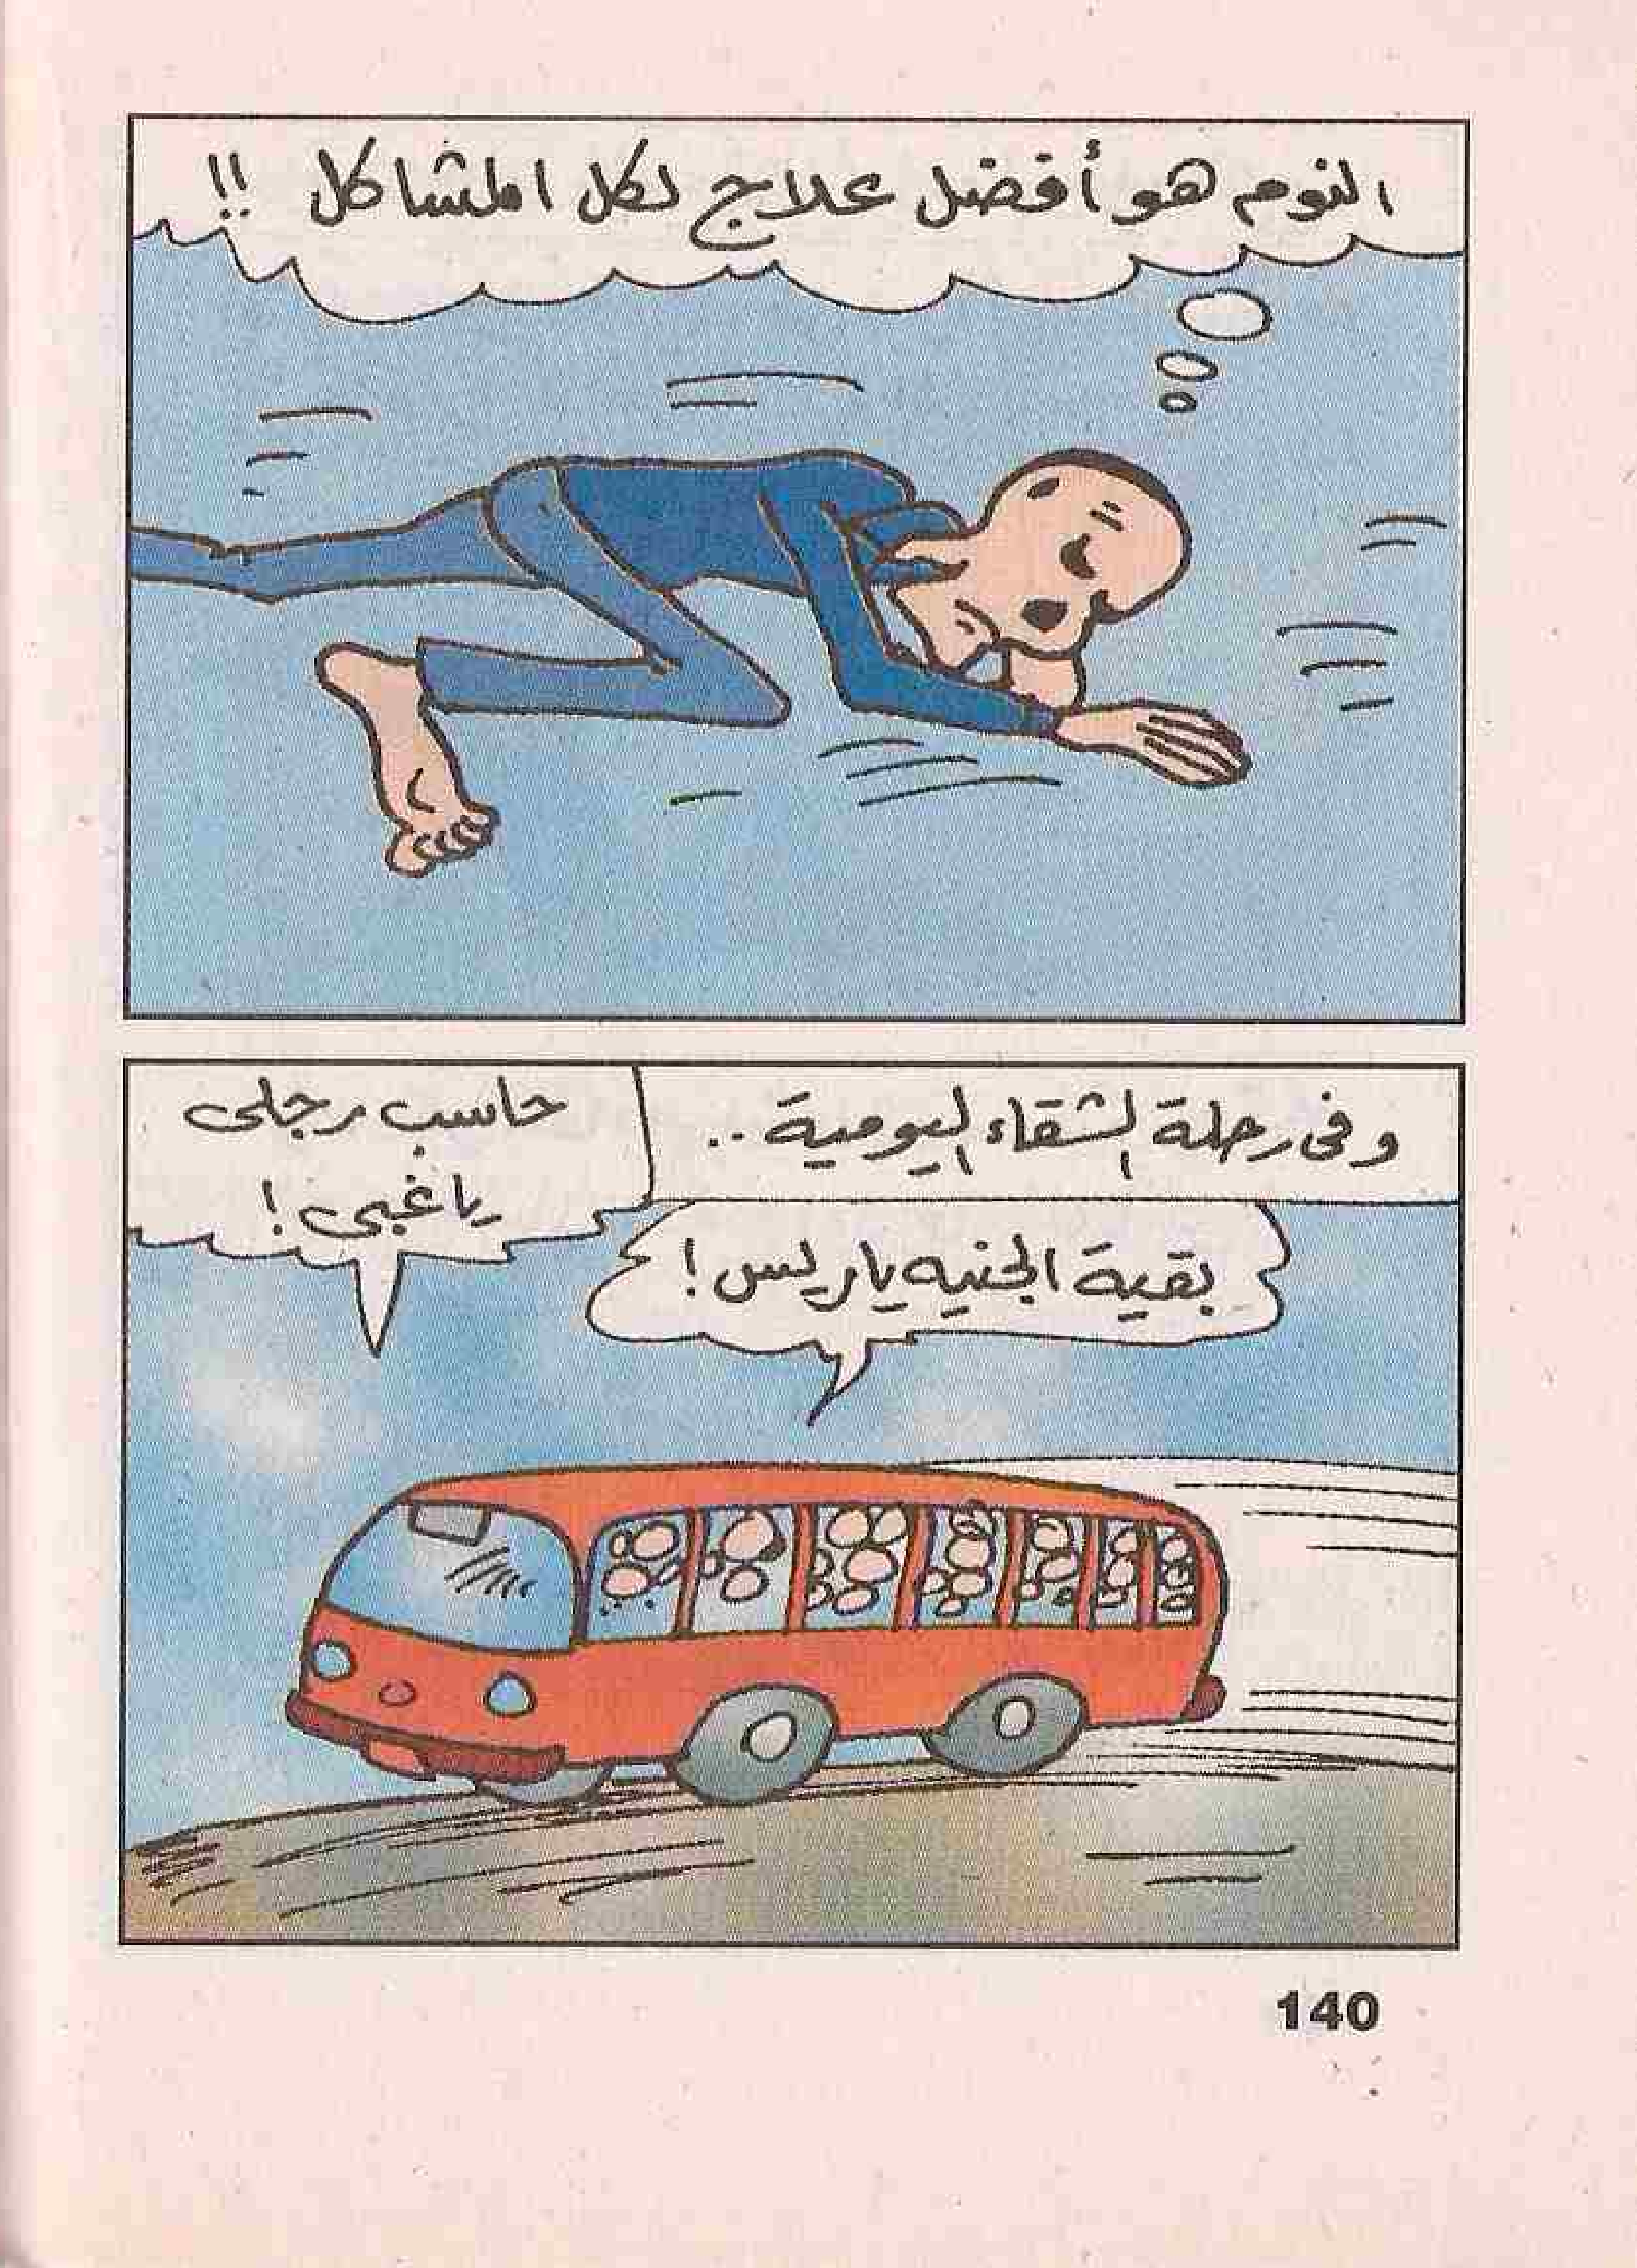 النوم هو أفضل علاج لكل المشاكل !!
وفى رحلة الشقاء اليومية ..
بقية الجنيه ياريس !
حاسب رجلى
ياغبى !
140